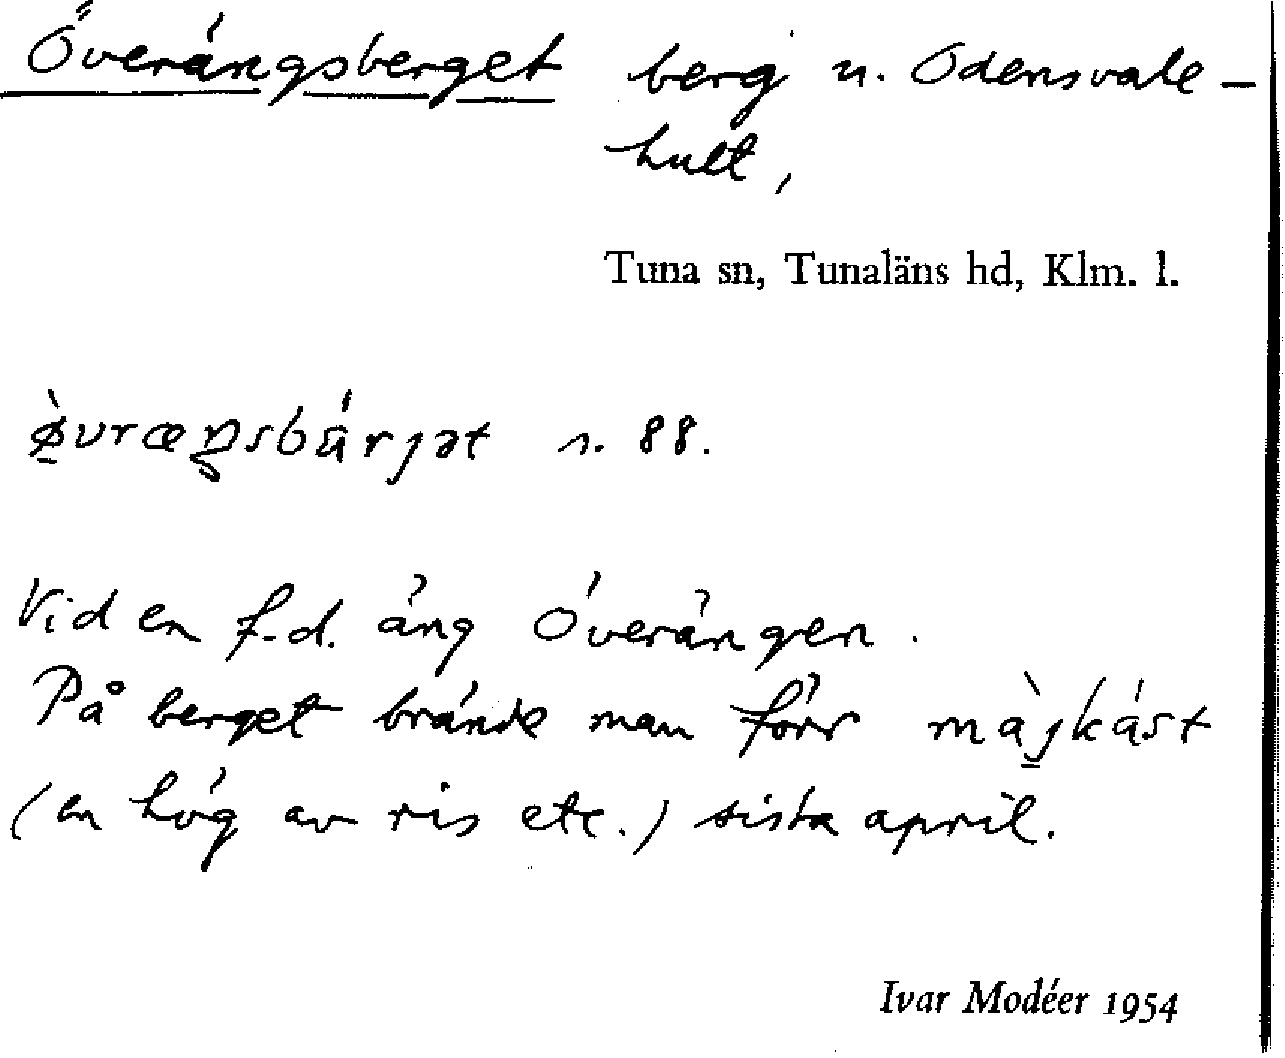 Överängsberget berg n. Odensvale-
hult,
Tuna sn, Tunaläns hd, Klm. l.
ø̠̀vræŋsbárjət s. 88.
Vid en f.d. äng Överängen.
På berget brände man förr mà̠jkást
(en hög av ris etc.) sista april.
Ivar Modéer 1954